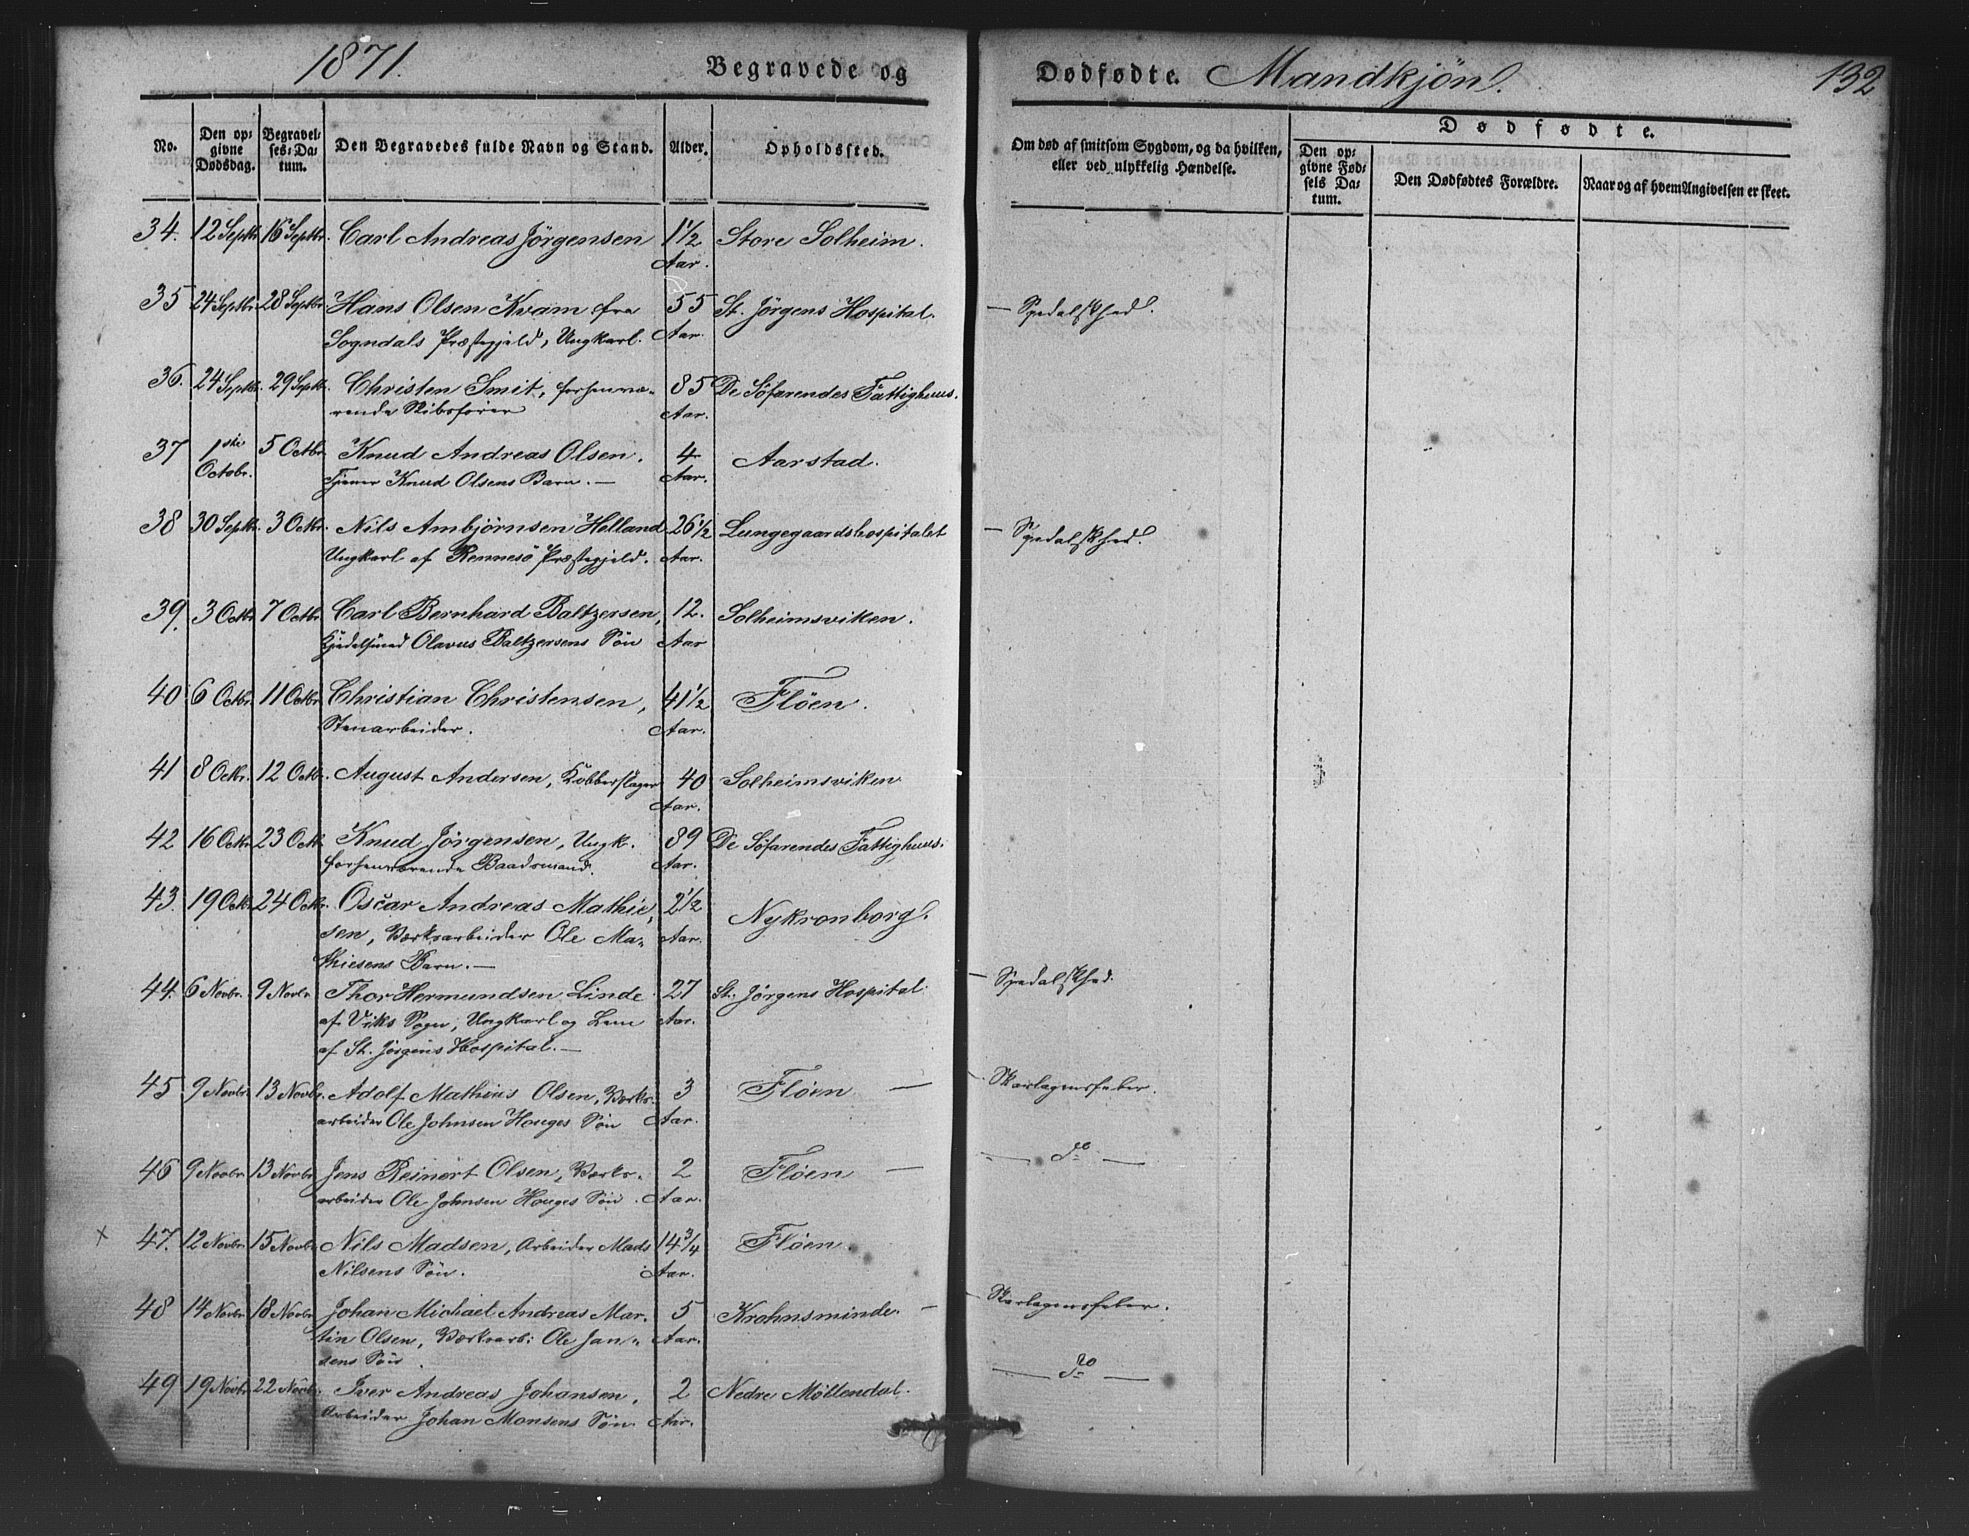 1871.
Begravede og
Dødfødte. Mandkjön.
132
No.
Den opgivne Dødsdag.
Begravelses-Datum.
Den Begravedes fulde Navn og Stand.
Alder.
Opholdssted.
Om død af smitsom Sygdom, og da hvilken, eller ved ulykkelig Hændelse.
Dødfødte.
Den opgivne Fødsels Datum.
Den Dødfødtes Forældre.
Naar og af hvem Angivelsen er skeet.
34. 12 Septbr. 16 Septbr. Carl Andreas Jörgensen 1 1/2 Store Solheim.
Aar.
35 24 Septbr. 28 Septbr. Hans Olsen Kvam fra 55 St. Jörgens Hospital. — Spedalskhed.
Sogndals Præstegjeld, Ungkarl. Aar.
36. 24 Septbr. 29 Septbr. Christen Smit, forhenvæ- 85 De Söfarendes Fattighuus.
rende Skibsförer Aar.
37 1ste 5 Octbr. Knud Andreas Olsen. 4 Aarstad.
Octobr. Tjener Knud Olsens Barn. — Aar.
38 30 Septbr. 3 Octbr. Nils Ambjörnsen Helland 26 1/2 Lungegaardshospitalet — Spedalskhed.
Ungkarl af Rennesö Præstegjeld. Aar.
39. 3 Octbr. 7 Octbr. Carl Bernhard Baltzersen, 12. Solheimsviken.
Kjedelsmed Olavus Baltzersens Sön Aar
40 6 Octbr. 11 Octbr. Christian Christensen, 41 1/2 Flöen.
Stenarbeider. Aar.
41 8 Octbr. 12 Octbr. August Andersen, Kobberslager 40 Solheimsviken
Aar.
42 16 Octbr. 23 Octbr. Knud Jörgensen, Ungk. 89 De Söfarendes Fattighuus.
forhenværende Baadsmand. Aar.
43. 19 Octbr. 24 Octbr. Oscar Andreas Mathie- 2 1/2 Nykronborg.
sen, Værksarbeider Ole Ma- Aar.
thiesens Barn. —
44. 6 Novbr. 9 Novbr. Thor Hermundsen Linde 27 St. Jörgens Hospital. — Spedalskhed.
af Viks Sogn, Ungkarl og Lem Aar.
af St. Jörgens Hospital. —
45 9 Novbr. 13 Novbr. Adolf Mathias Olsen, Værks- 3 Flöen. — Skarlagensfeber.
arbeider Ole Johnsen Houges Sön Aar.
46 9 Novbr. 13 Novbr. Jens Reinert Olsen, Værks- 2 Flöen — — do —
arbeider Ole Johnsen Houges Sön. Aar.
x 47. 12 Novbr. 15 Novbr. Nils Madsen, Arbeider Mads 14 3/4 Flöen.
Nilsens Sön. Aar.
48 14 Novbr. 18 Novbr. Johan Michael Andreas Mar- 5 Krohnsminde. — Skarlagensfeber.
tin Olsen, Værksarb: Ole Jan- Aar.
sens Sön.
49 19 Novbr. 22 Novbr. Iver Andreas Johansen, 2 Nedre Möllendal. — do —
Arbeider Johan Monsens Sön. Aar.